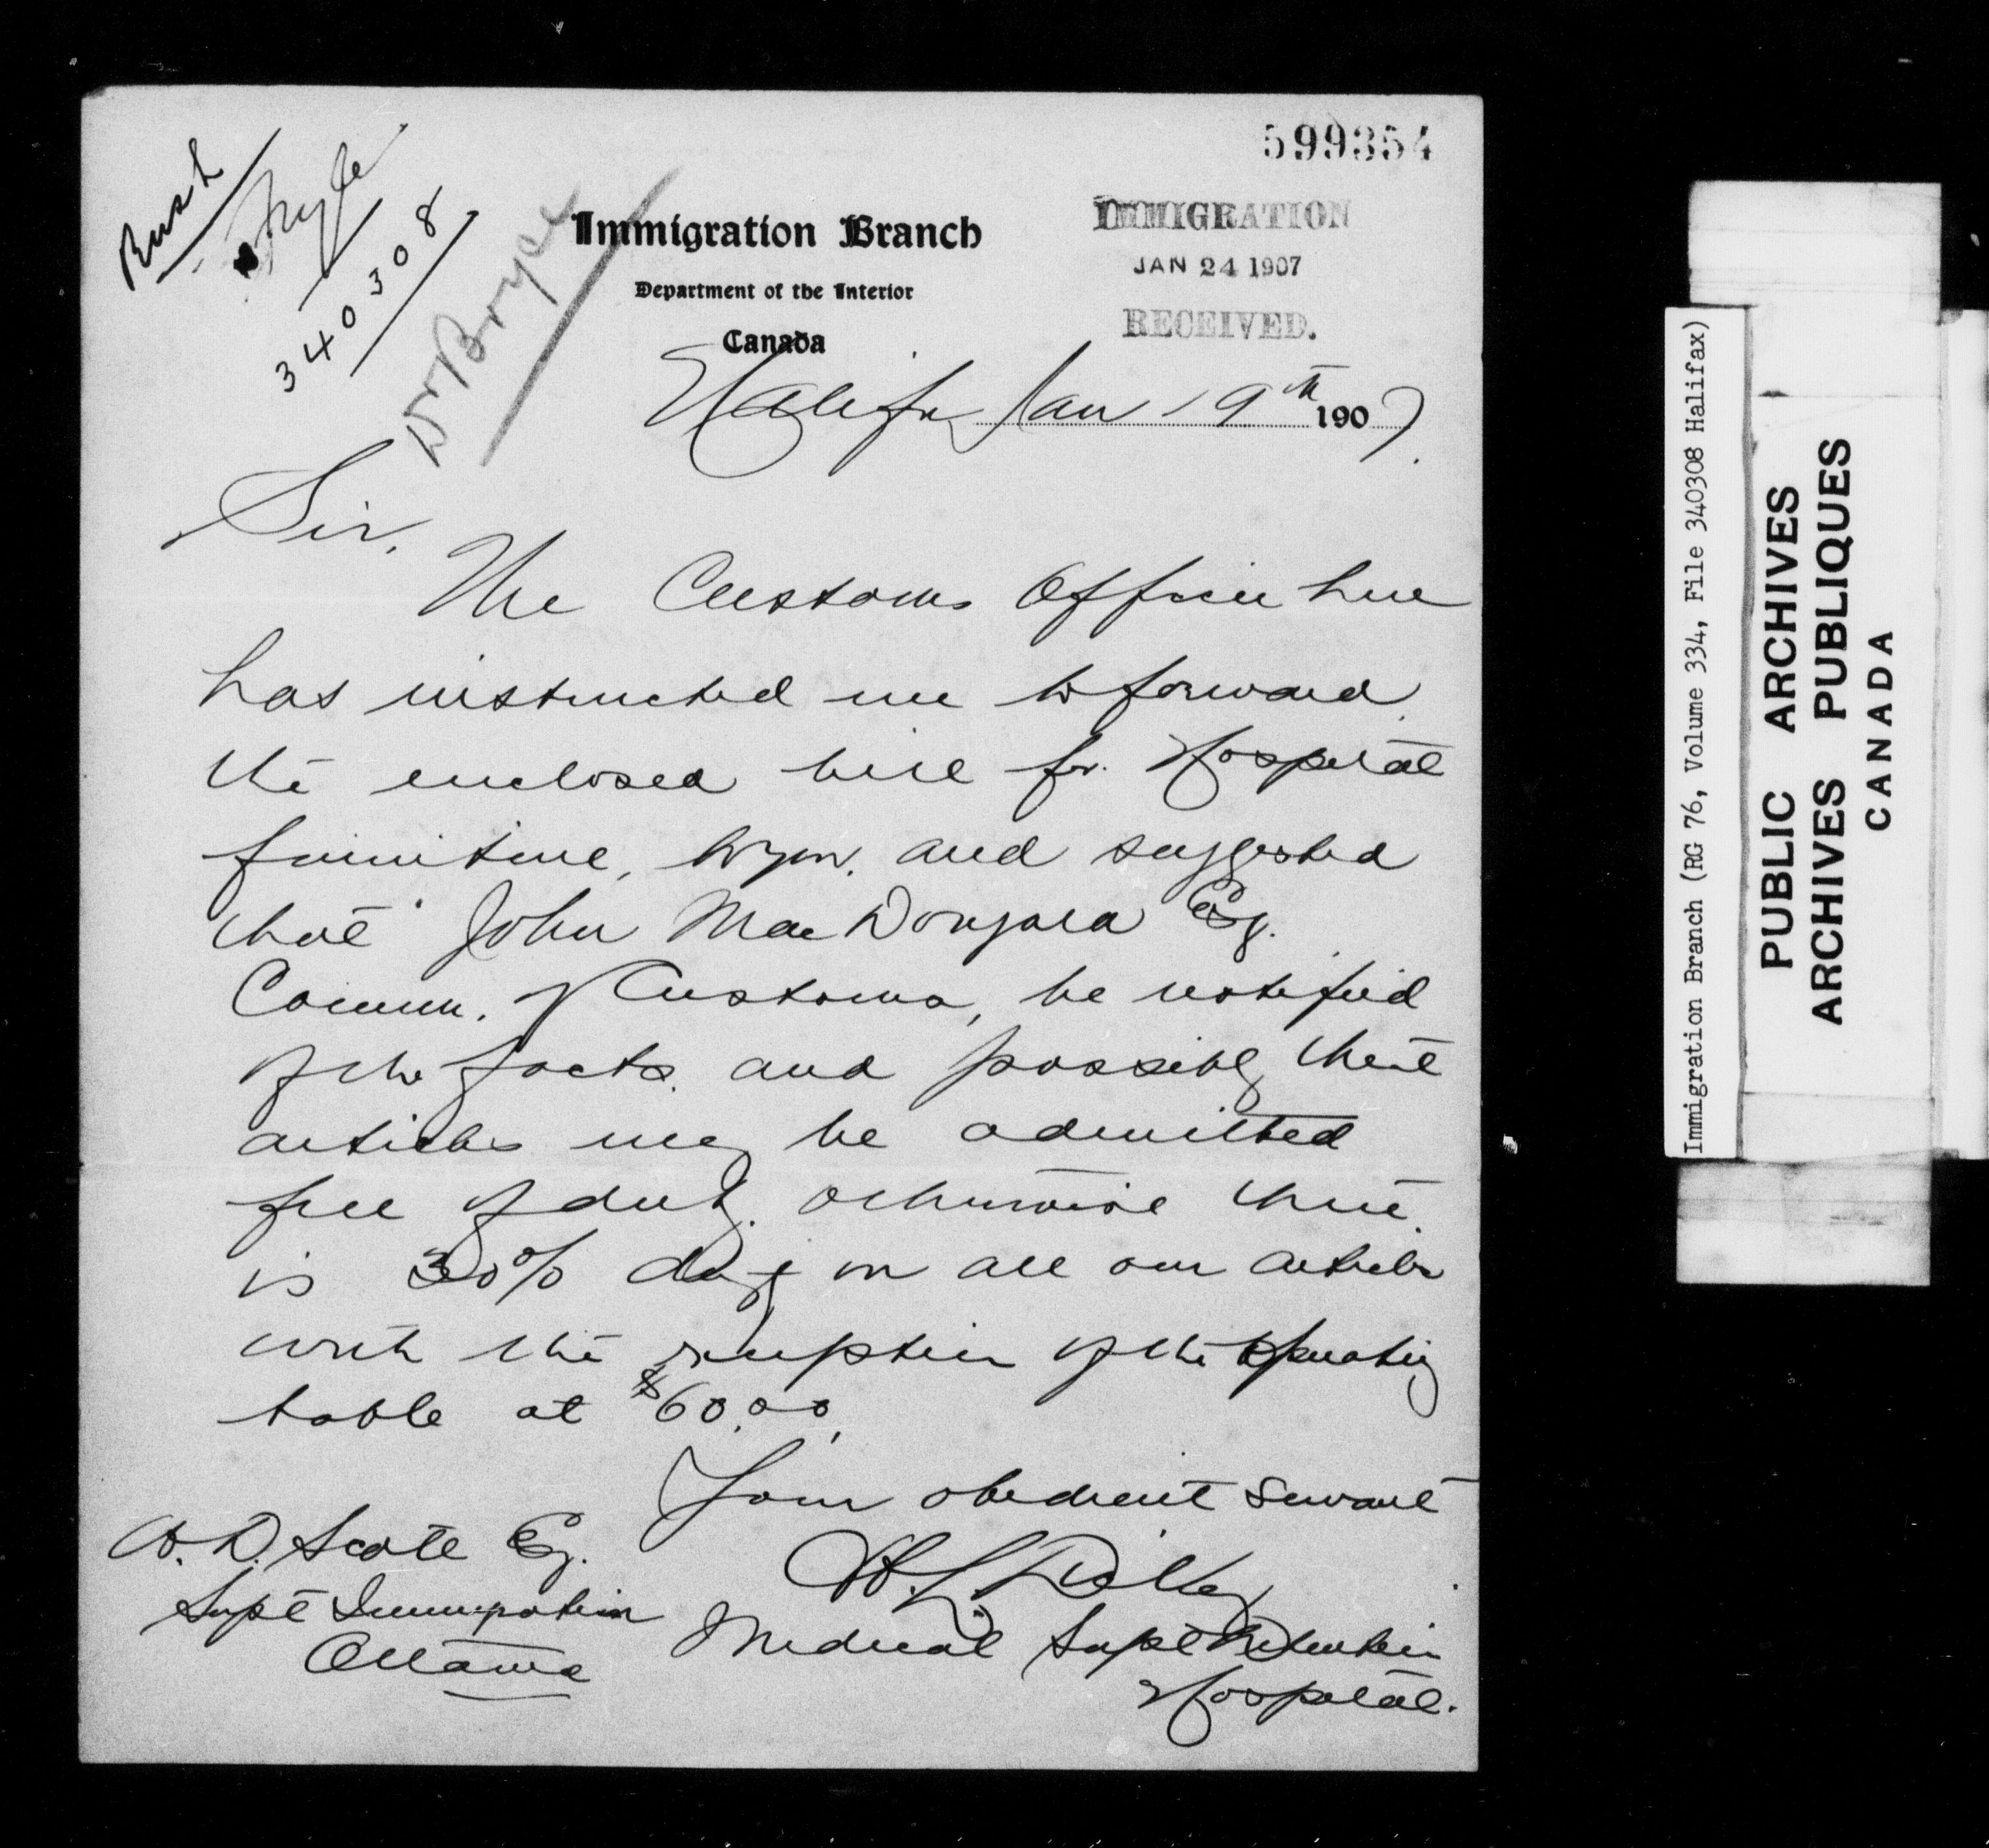 599354
Rush
340308
Dr Bryce
Immigration Branch
Department of the Interior
Canada
IMMIGRATION
JAN 24 1907
RECEIVED.
Halifax Jan 19th 1907.
Sir,
The Customs Officer here
has instructed me to forward
the enclosed bill for Hospital
furniture, to you. and suggested
that John MacDougald Esq.
Comm. of Customs, be notified
of the facts. and possibly these
articles may be admitted
free of duty. otherwise there
is 30% duty on all our articles
with the exception of the operating
table at $60.00.
Your obedient servant
W. D. Scott Esq.
Supt Immigration
Ottawa
Medical Supt Detention
Hospital.
Immigration Branch (RG 76, Volume 334, File 340308 Halifax)
PUBLIC ARCHIVES
ARCHIVES PUBLIQUES
CANADA